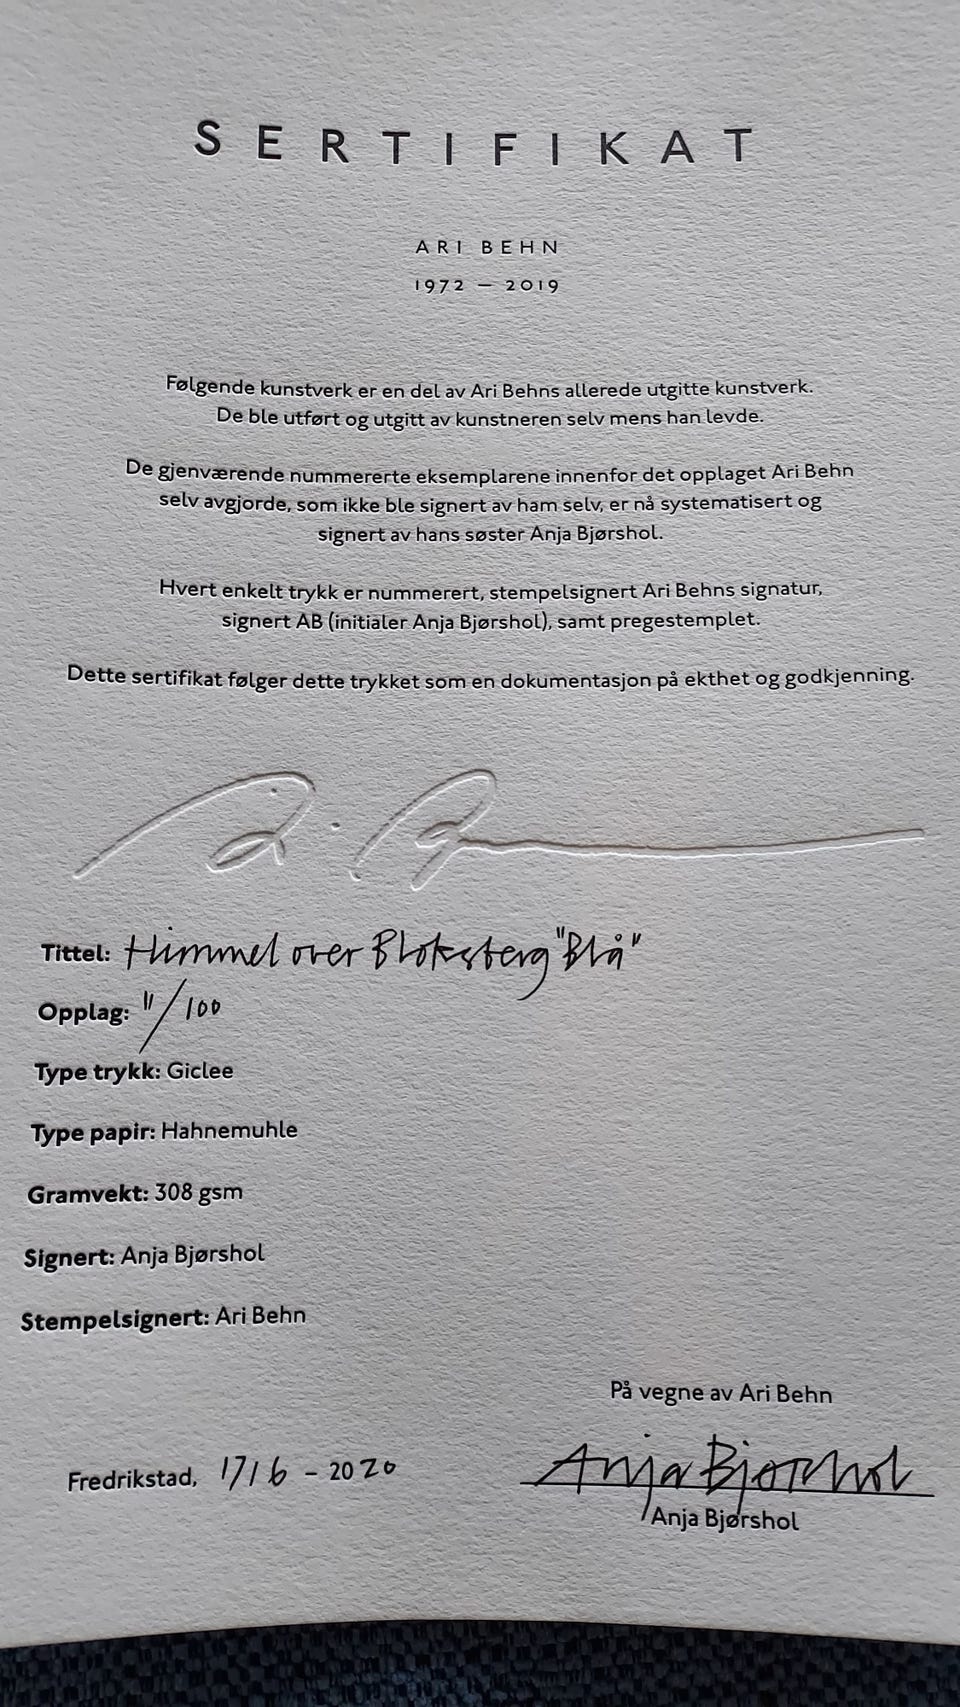 SERTIFIKAT
ARI BEHN
1972 – 2019
Følgende kunstverk er en del av Ari Behns allerede utgitte kunstverk.
De ble utført og utgitt av kunstneren selv mens han levde.
De gjenværende nummererte eksemplarene innenfor det opplaget Ari Behn
selv avgjorde, som ikke ble signert av ham selv, er nå systematisert og
signert av hans søster Anja Bjørshol.
Hvert enkelt trykk er nummerert, stempelsignert Ari Behns signatur,
signert AB (initialer Anja Bjørshol), samt pregestemplet.
Dette sertifikat følger dette trykket som en dokumentasjon på ekthet og godkjenning.
Tittel: Himmel over Bloksberg "Blå"
Opplag: 11/100
Type trykk: Giclee
Type papir: Hahnemuhle
Gramvekt: 308 gsm
Signert: Anja Bjørshol
Stempelsignert: Ari Behn
På vegne av Ari Behn
Fredrikstad, 17/6 - 2020
Anja Bjørshol
Anja Bjørshol